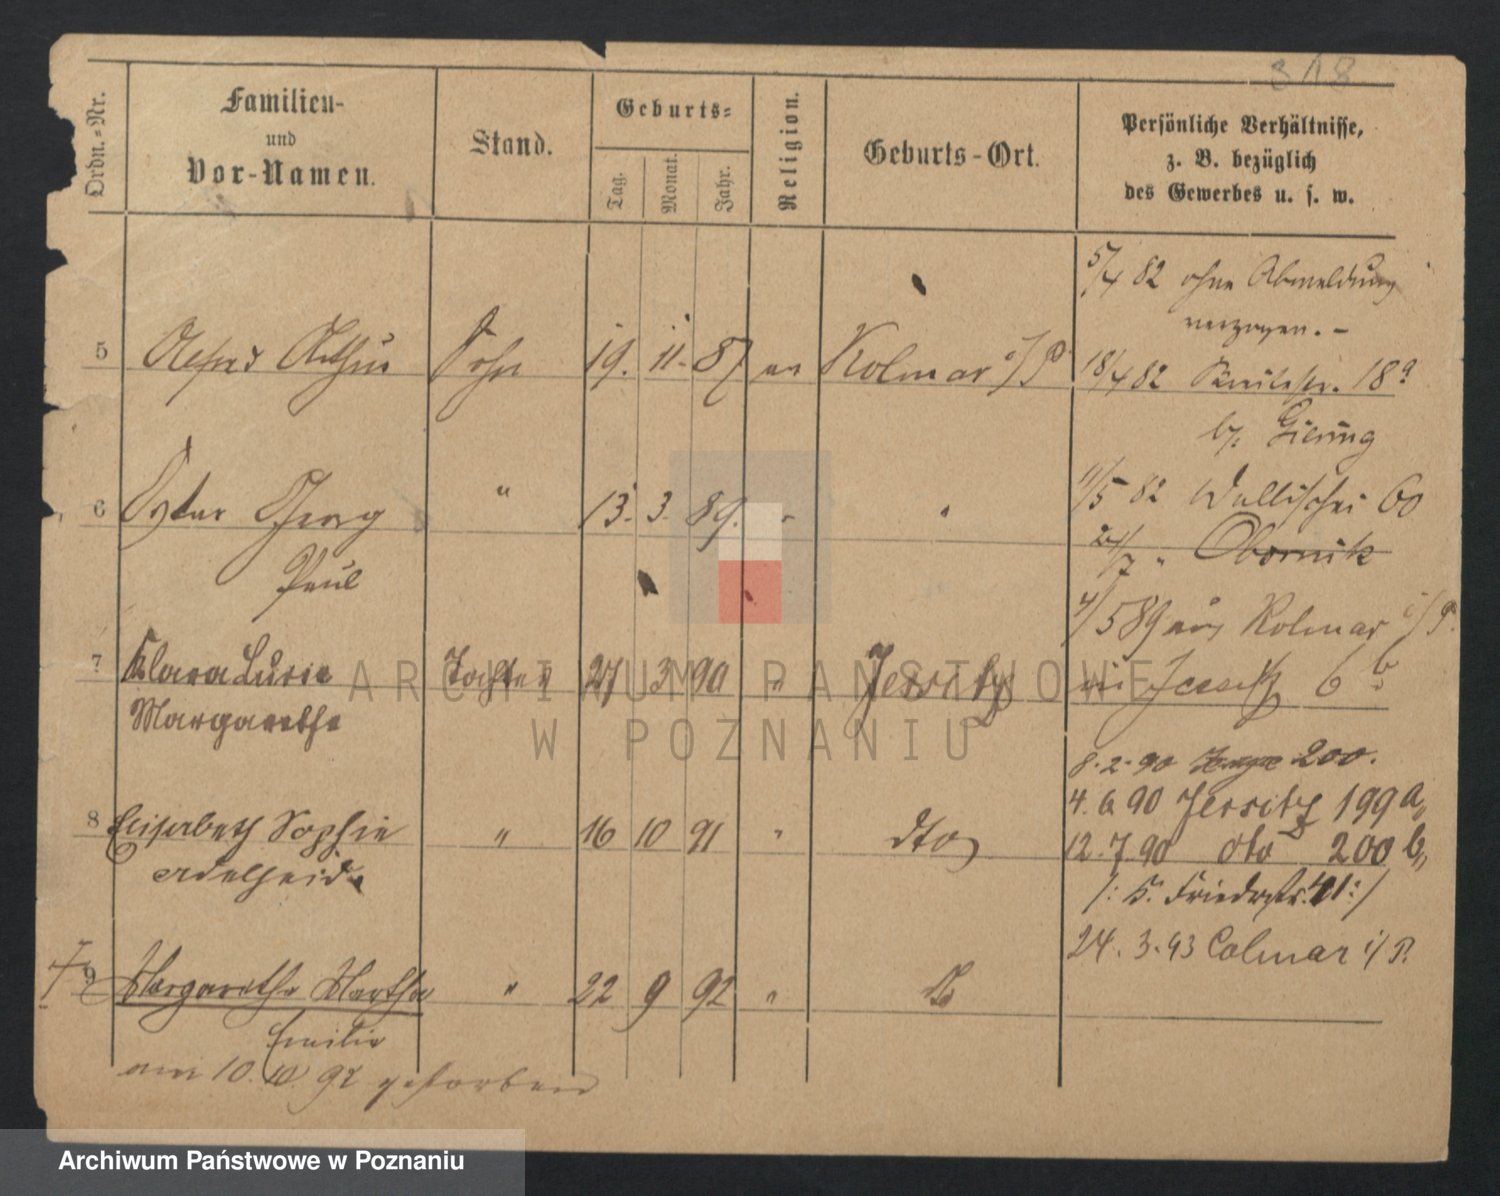 318
Ordn.-Nr.
Familien-
und
Vor-Namen.
Stand.
Geburts-
Tag.
Monat.
Jahr.
Religion.
Geburts-Ort.
Persönliche Verhältnisse,
z. B. bezüglich
des Gewerbes u. s. w.
5/4 82 ohne Abmeldung
verzogen. –
5 Alfred Arthur Sohn 19. 11. 87 ev Kolmar i/P
18/4 82 18a
b/
6 Oskar Georg " 13. 3. 89. " "
Paul
11/5 82 Wallischei 60
/7 " Obornik
4/5 89 aus Kolmar i/P.
7 Klara Lucie Tochter 27 3 90 " Jersitz
Margarethe
in Jersitz 6 b
8.2.90 200.
4.6.90 Jersitz 199a,,
8 Elisabeth Sophie " 16 10 91 " dto
Adelheid
12.7.90 dto 200 b,,
/: K. Friedrstr. 41 :/
24.3.93 Colmar i/P.
9 Margarethe Martha " 22 9 92 "
Emilie
am 10. 10 92 gestorben
ARCHIWUM PAŃSTWOWE
W POZNANIU
Archiwum Państwowe w Poznaniu